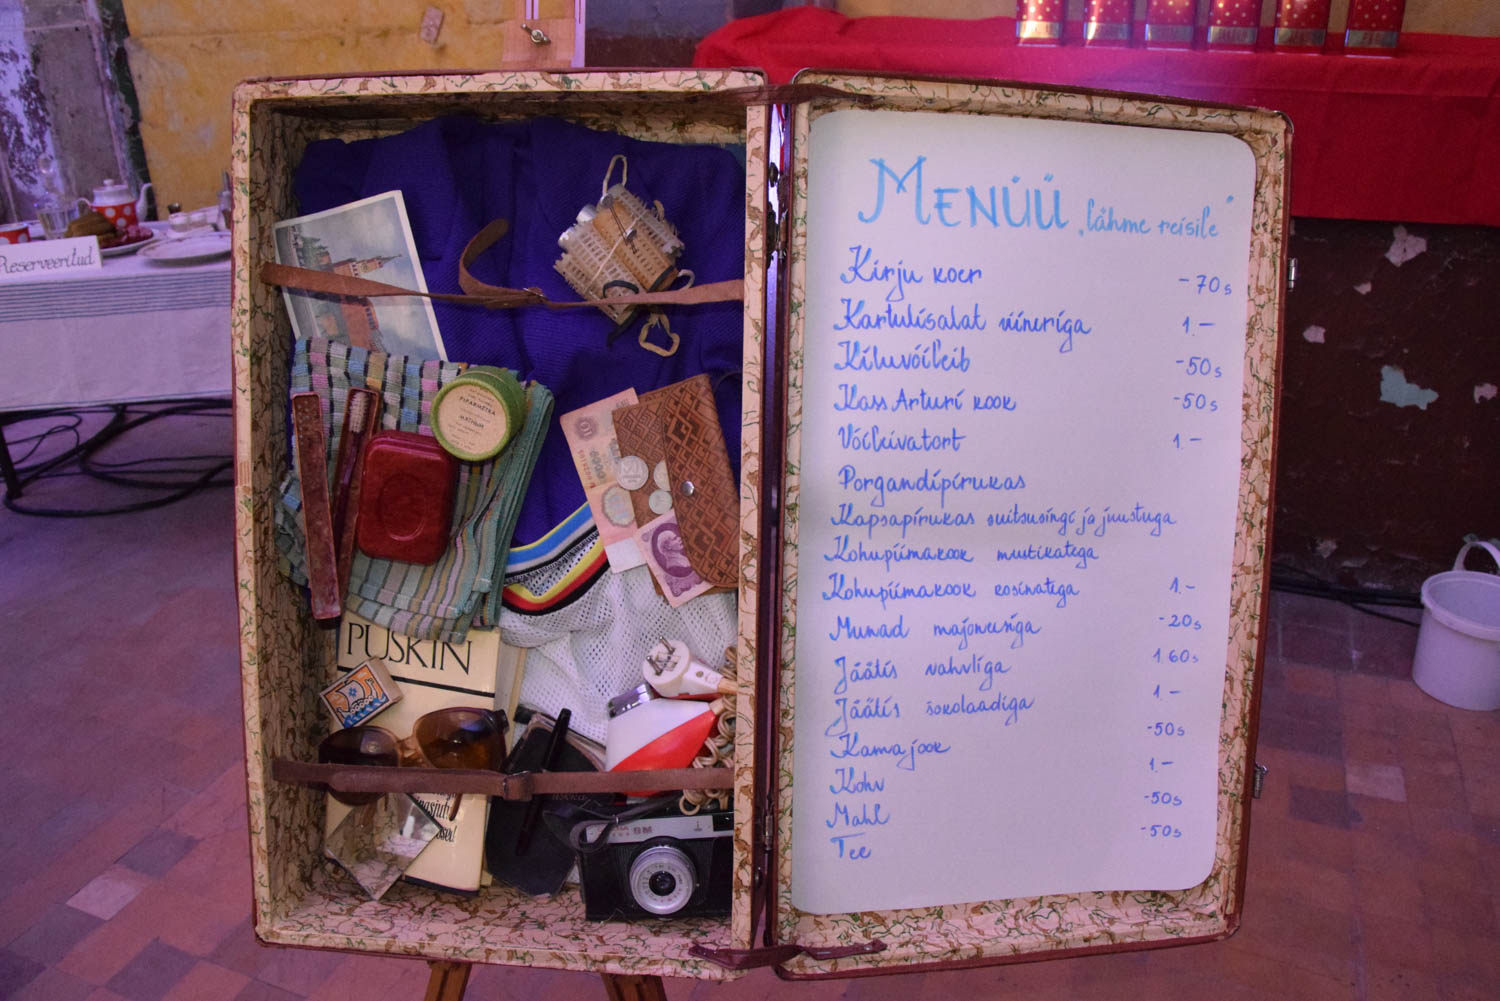 Reserveeritud
PIPARMÜNTKA
МЯТНЫЙ
PUSKIN
8M
MENÜÜ „Lähme reisile"
Kirju koer -70s
Kartulisalat viineriga 1.-
Kiluvõileib -50s
Kass Arturi kook -50s
Võileivatort 1.-
Porgandipirukas
Kapsapirukas suitsusingi ja juustuga
Kohupiimakook mustikatega
Kohupiimakook rosinatega 1.-
Munad majoneesiga -20s
Jäätis vahvliga 1 60s
Jäätis šokolaadiga 1.-
Kama jook -50s
Kohv 1.-
Mahl -50s
Tee -50s